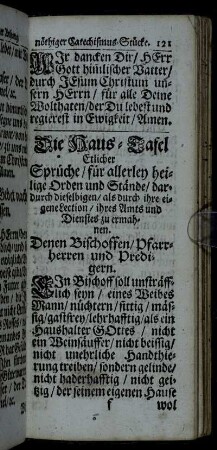 nöthiger Catechismus-Stücke. 121
WIr dancken Dir / HErr
Gott himlischer Vatter /
durch JEsum Christum un-
sern HErrn / für alle Deine
Wolthaten / der Du lebest und
regierest in Ewigkeit / Amen.
Die Haus-Tafel
Etlicher
Sprüche / für allerley hei-
lige Orden und Stände / dar-
durch dieselbigen / als durch ihre ei-
gene Lection / ihres Amts und
Dienstes zu ermah-
nen.
Denen Bischoffen / Pfarr-
herren und Predi-
gern.
EIn Bischoff soll unsträff-
lich seyn / eines Weibes
Mann / nüchtern / sittig / mäs-
sig / gastfrey / lehrhafftig / als ein
Haushalter GOttes / nicht
ein Weinsäuffer / nicht beissig /
nicht unehrliche Handthie-
rung treiben / sondern gelinde /
nicht haderhafftig / nicht gei-
tzig / der seinem eigenen Hause
f wol